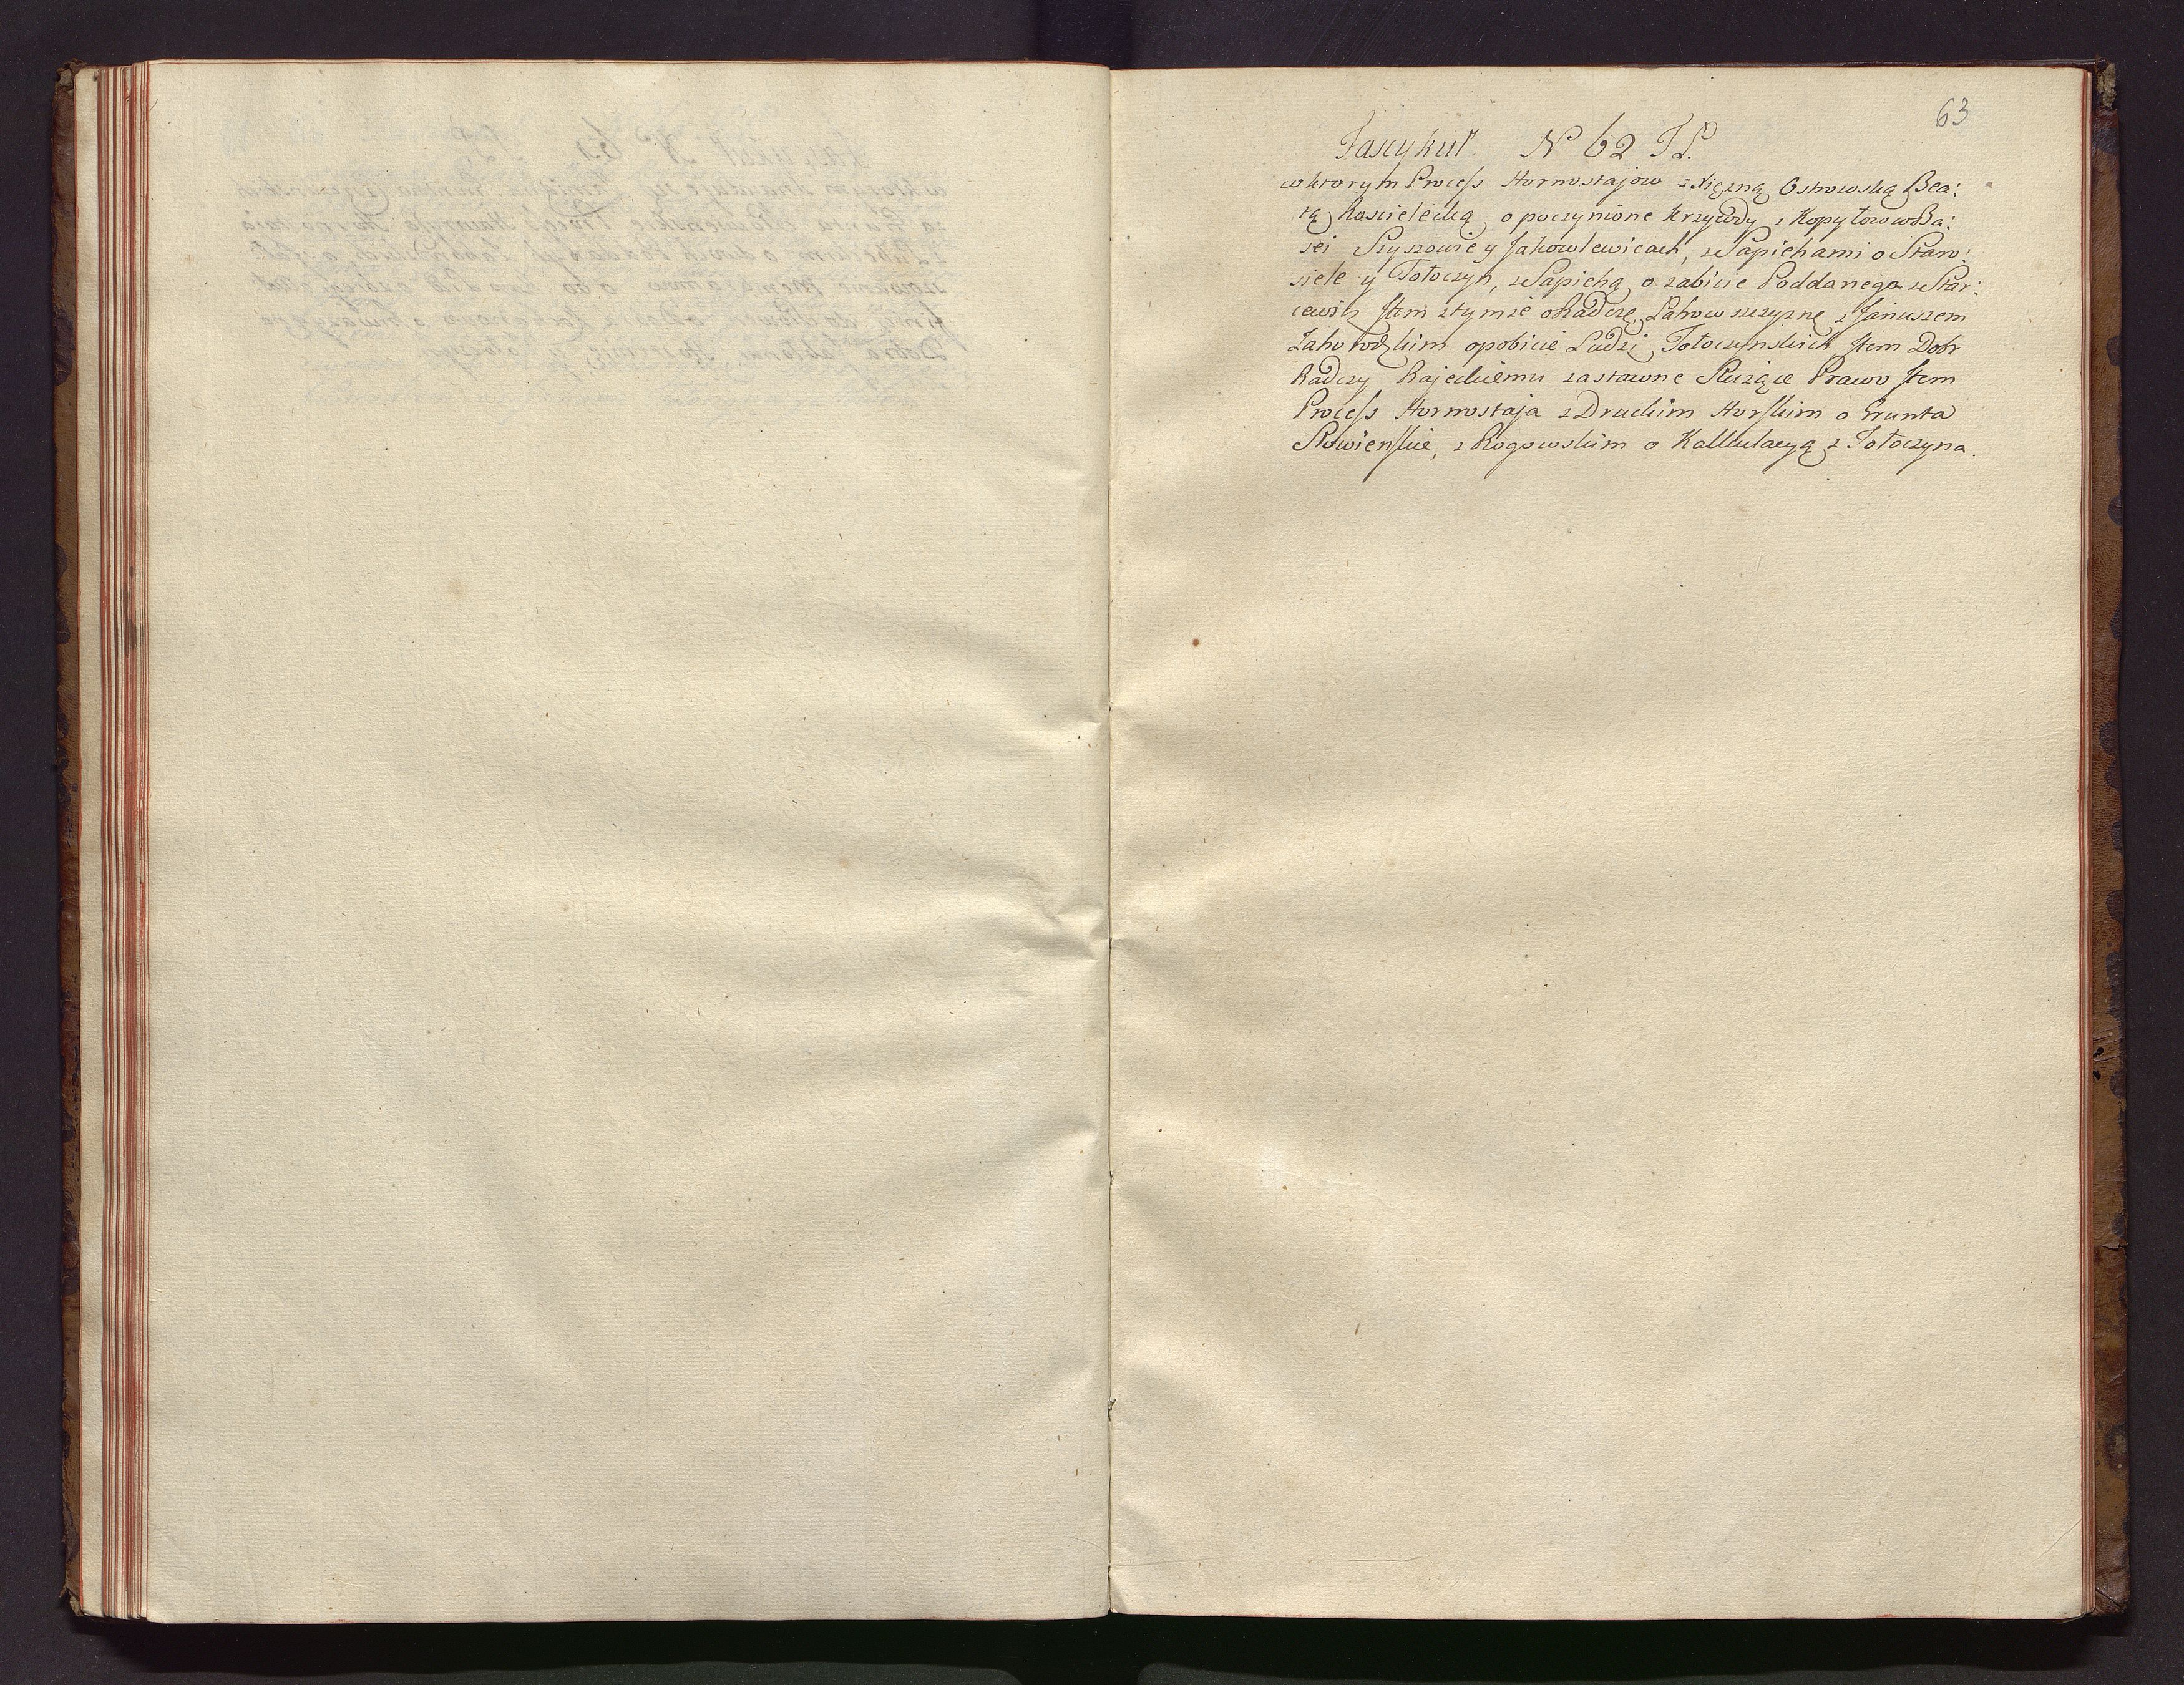 63
Fascykuł N 62 TP.
w ktorym Process Hornostajow z Xiężną Ostrowską Bea:
tą Kascielecką o poczynione krzywdy z Kopyłowow Ba:
sei Szyszowie y Jakowlewicach, z Sapiehami o Staro:
siele y Tołoczyn, z Sapiehą o zabicie Poddanego z Star:
cewicz Item z tymże o Radczę Lahowszczyznę z Januszem
Zahorodzkim o pobicie Ludzi Tołoczynskich Item Dobr
Radczy Rajeckiemu zastawne Służące Prawo Item
Process Hornostaja z Druckim Horskim o Grunta
Słowienskie, z Rogowskim o Kallkulacyą z Tołoczyna.